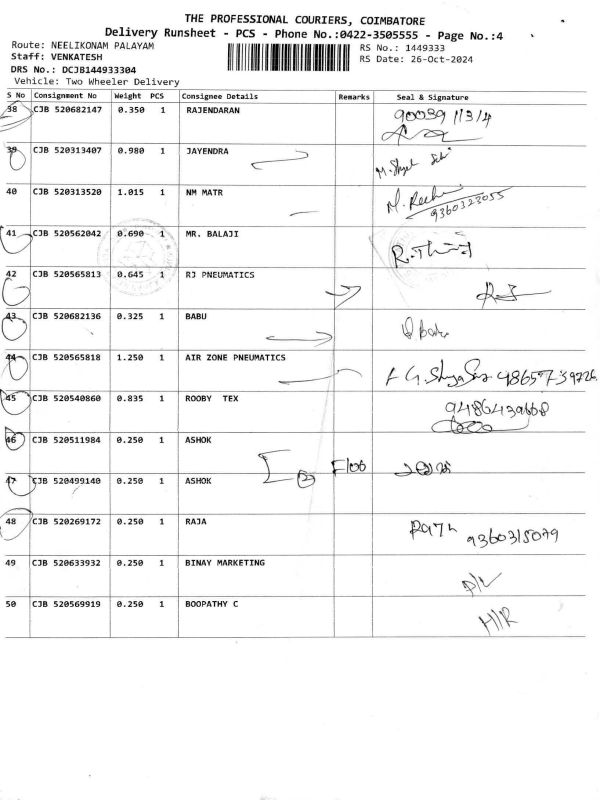 THE PROFESSIONAL COURIERS, COIMBATORE
Delivery Runsheet - PCS - Phone No.:0422-3505555 - Page No.:4
Route: NEELIKONAM PALAYAM
RS No.: 1449333
Staff: VENKATESH
RS Date: 26-Oct-2024
DRS No.: DCJB144933304
Vehicle: Two Wheeler Delivery
S No Consignment No Weight PCS Consignee Details Remarks Seal & Signature
38 CJB 520682147 0.350 1 RAJENDARAN
39 CJB 520313407 0.980 1 JAYENDRA
40 CJB 520313520 1.015 1 NM MATR 9360323055
41 CJB 520562042 0.690 1 MR. BALAJI
42 CJB 520565813 0.645 1 RJ PNEUMATICS
43 CJB 520682136 0.325 1 BABU
44 CJB 520565818 1.250 1 AIR ZONE PNEUMATICS
45 CJB 520540860 0.835 1 ROOBY TEX
46 CJB 520511984 0.250 1 ASHOK
47 CJB 520499140 0.250 1 ASHOK
48 CJB 520269172 0.250 1 RAJA 9360315079
49 CJB 520633932 0.250 1 BINAY MARKETING D/L
50 CJB 520569919 0.250 1 BOOPATHY C H/R